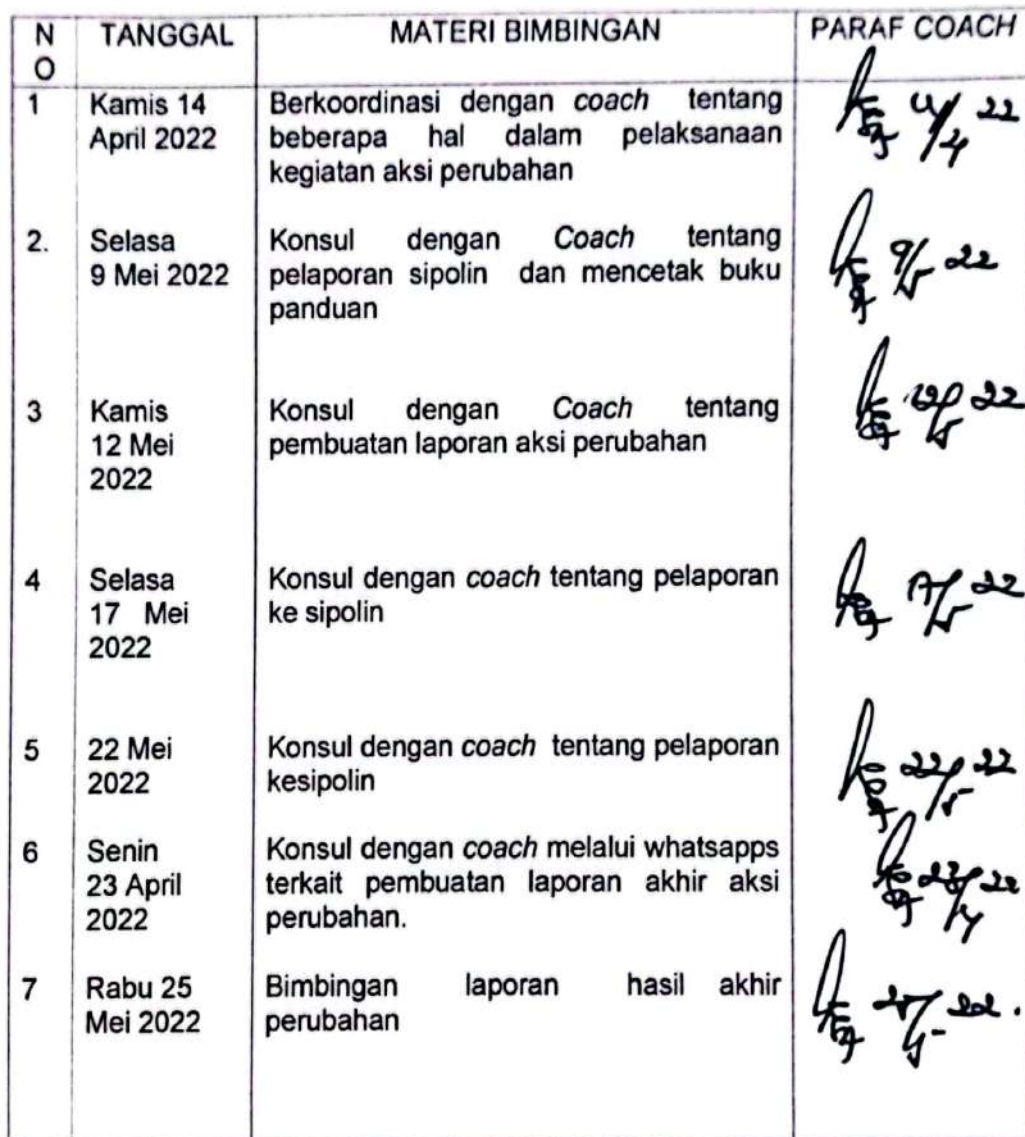 N
O
TANGGAL
MATERI BIMBINGAN
PARAF COACH
1
Kamis 14
April 2022
Berkoordinasi dengan coach tentang
beberapa hal dalam pelaksanaan
kegiatan aksi perubahan
2.
Selasa
9 Mei 2022
Konsul dengan Coach tentang
pelaporan sipolin dan mencetak buku
panduan
9/5 22
3
Kamis
12 Mei
2022
Konsul dengan Coach tentang
pembuatan laporan aksi perubahan
4
Selasa
17 Mei
2022
Konsul dengan coach tentang pelaporan
ke sipolin
17/5 22
5
22 Mei
2022
Konsul dengan coach tentang pelaporan
kesipolin
22/5 22
6
Senin
23 April
2022
Konsul dengan coach melalui whatsapps
terkait pembuatan laporan akhir aksi
perubahan.
23/4 22
7
Rabu 25
Mei 2022
Bimbingan laporan hasil akhir
perubahan